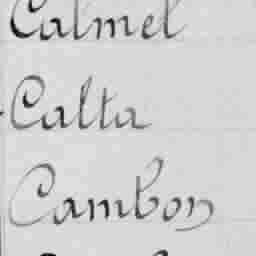 Calmel
Calta
Cambon